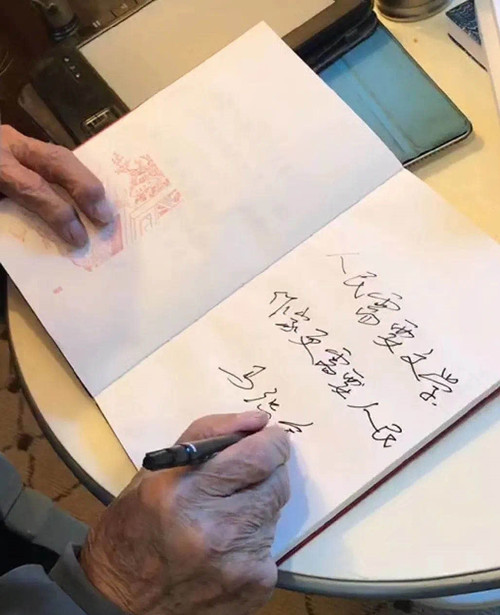 人民需要文学
作家更需要人民
马